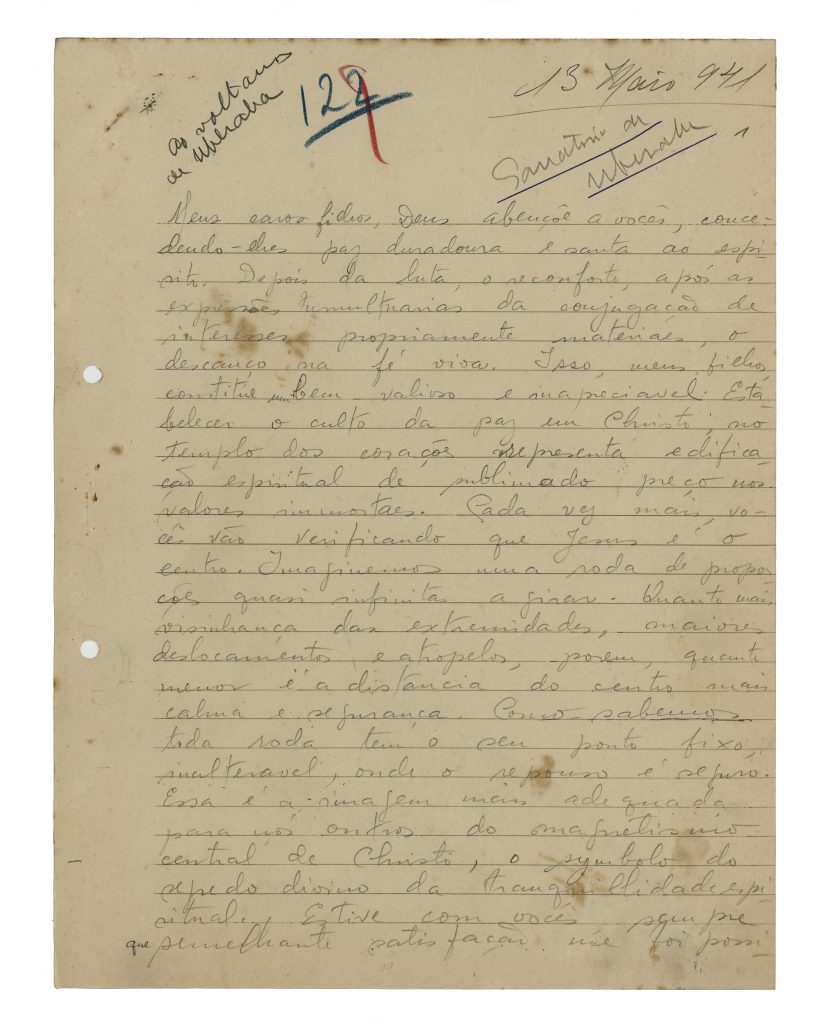 ao voltarmos
de Uberaba
122
13 Maio 941
Sanatorio de
Uberaba
1
Meus caros filhos, Deus abençôe a vocês, conce-
dendo-lhes paz duradoura e santa ao espi-
rito. Depois da luta, o reconforto, após as
expressões tumultuarias da conjugação de
interesses propriamente materiaes, o
descanço na fé viva. Isso, meus filhos,
constitue um bem valioso e inapreciavel. Esta-
belecer o culto da paz em Christo, no
templo dos corações representa edifica-
ção espiritual de sublimado preço nos
valores immortaes. Cada vez mais, vo-
cês vão verificando que Jesus é o
centro. Imaginemos uma roda de propor-
ções quasi infinitas a girar. Quanto mais
visinhança das extremidades, maiores
deslocamentos e atropelos, porem, quanto
menor é a distancia do centro mais
calma e segurança. Como sabemos
toda roda tem o seu ponto fixo,
inalteravel, onde o repouso é seguro.
Essa é a imagem mais adequada
para nós outros do magnetismo
central de Christo, o symbolo do
segredo divino da tranquillidade espi-
ritual. Estive com vocês sempre
que semelhante satisfação me foi possi-